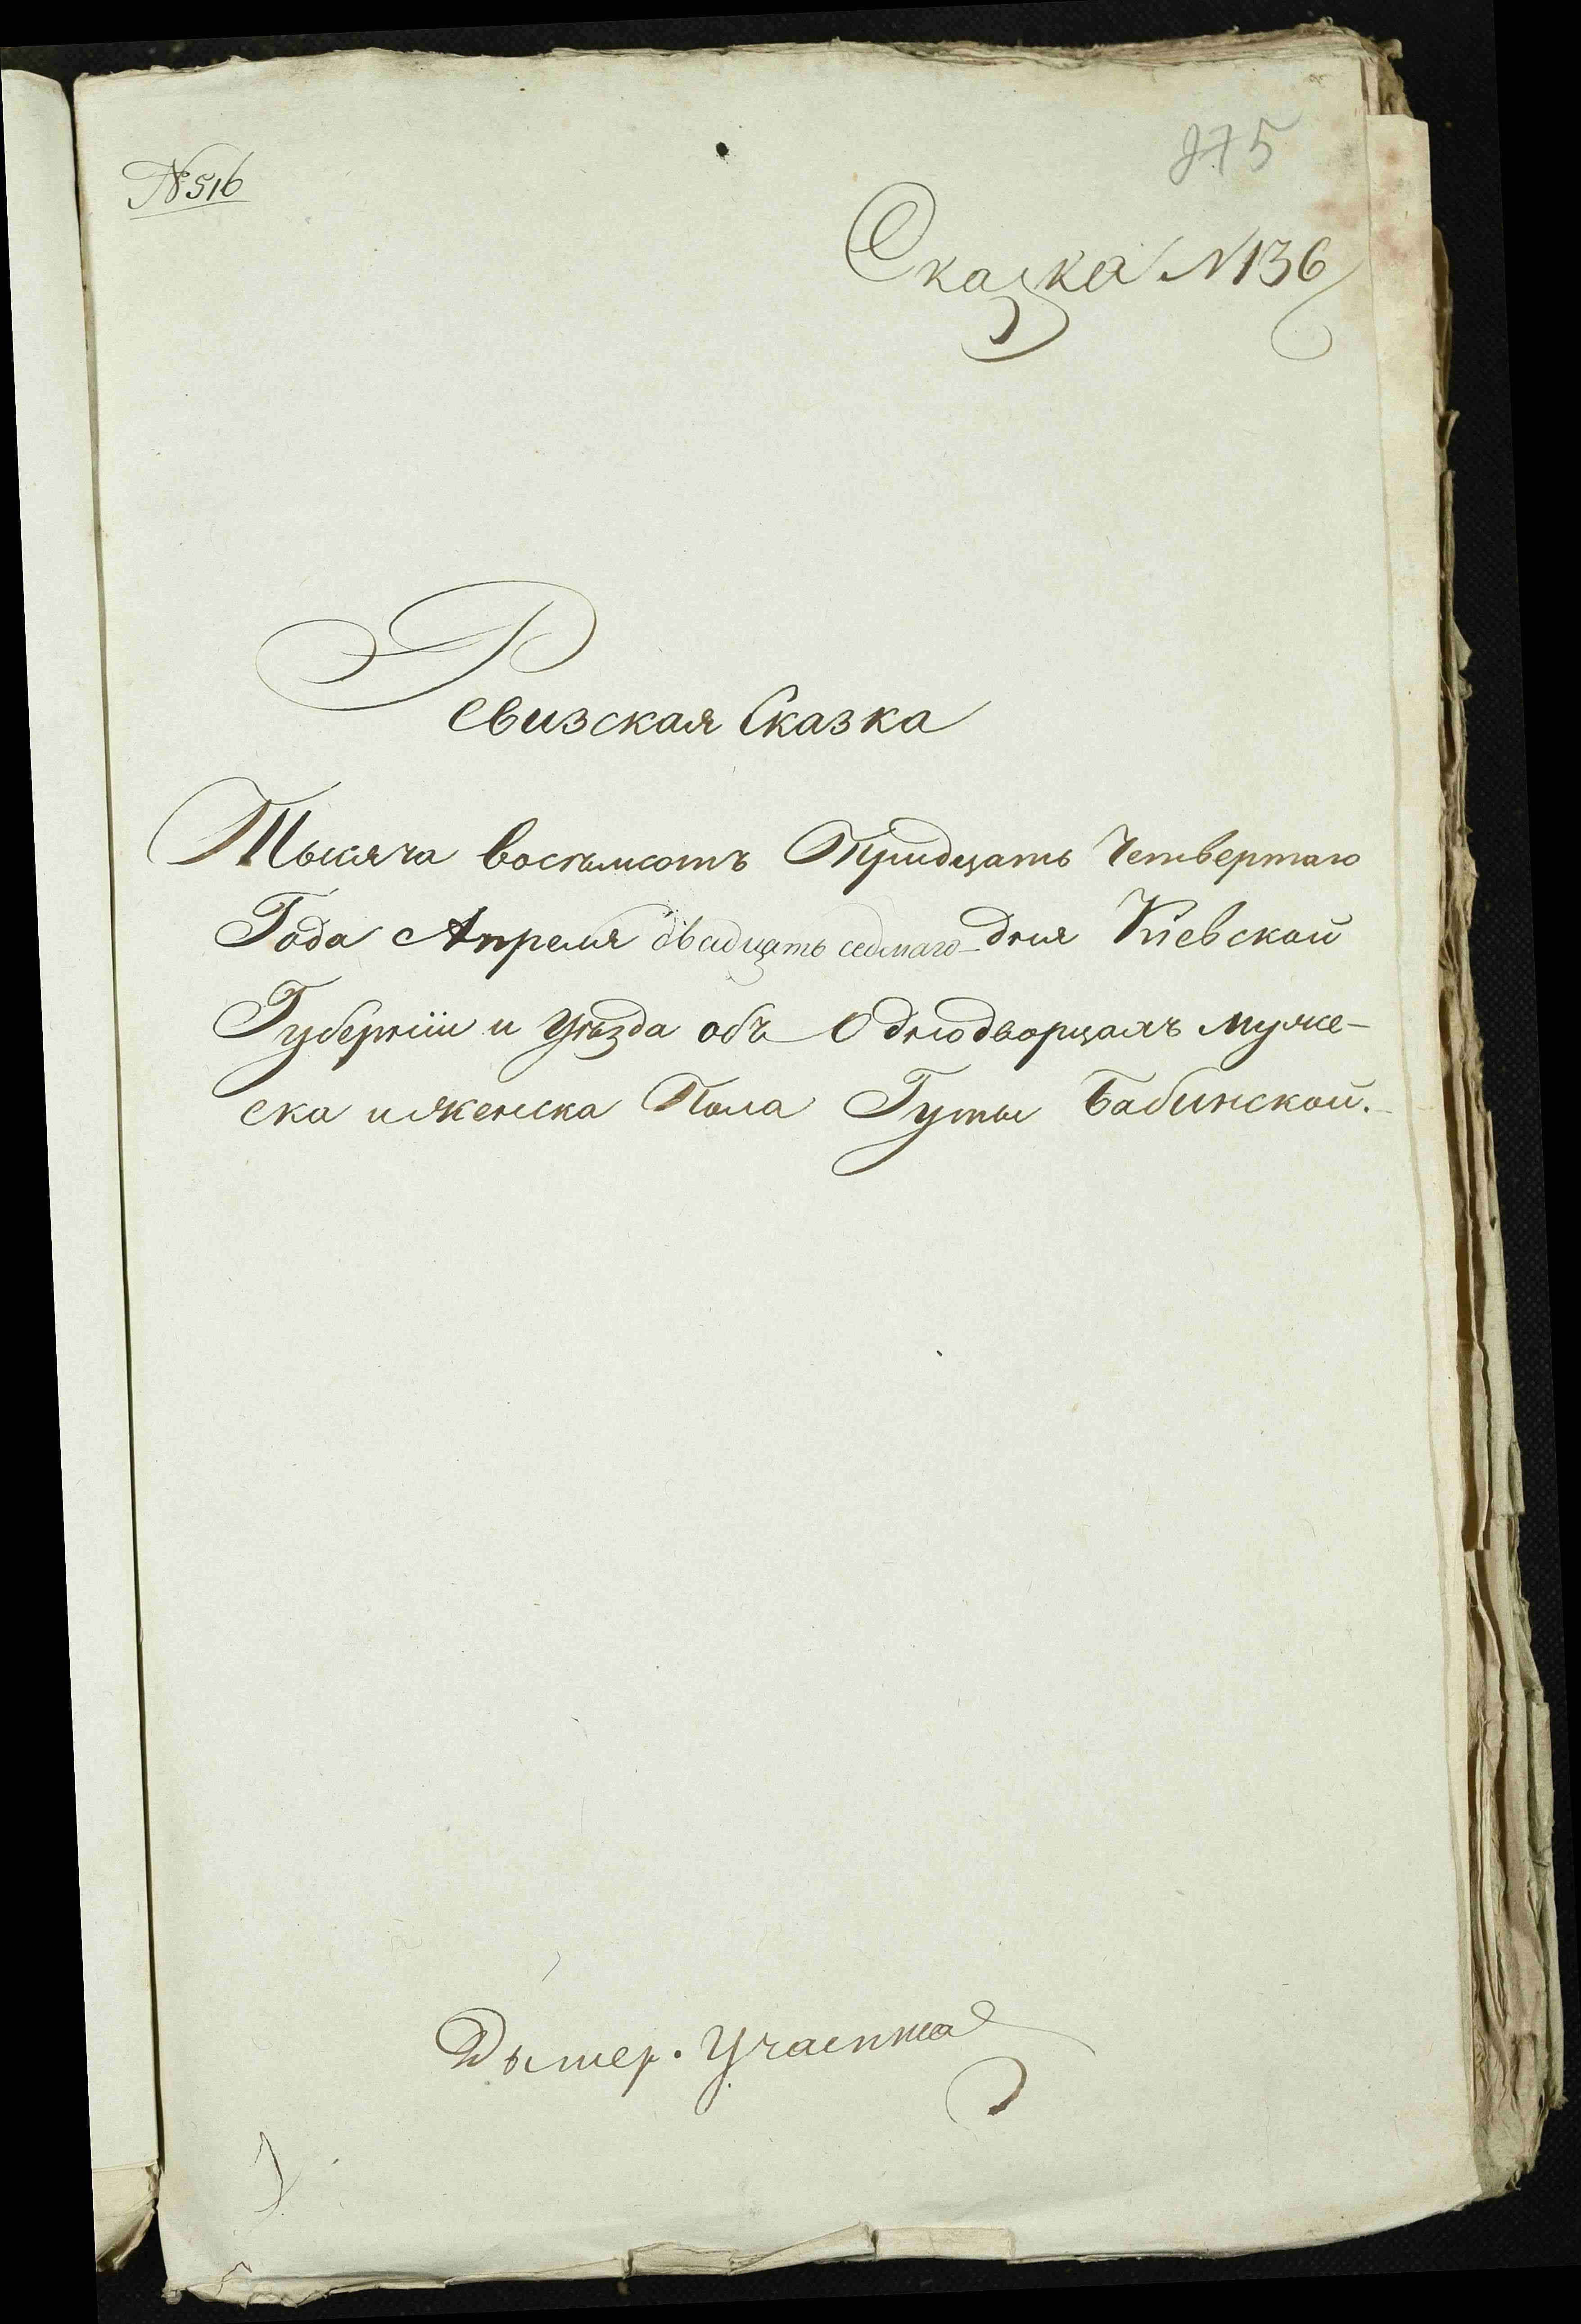 № 516
875
Сказка N 136
Ревизская Сказка
Тысяча восемьсотъ Тридцать Четвертаго
Года Апреля двадцать седмаго дня Кіевской
Губерніи и Уѣзда объ Однодворцахъ муже-
ска и женска Пола Гуты Бабинской.
Дымер. Участка